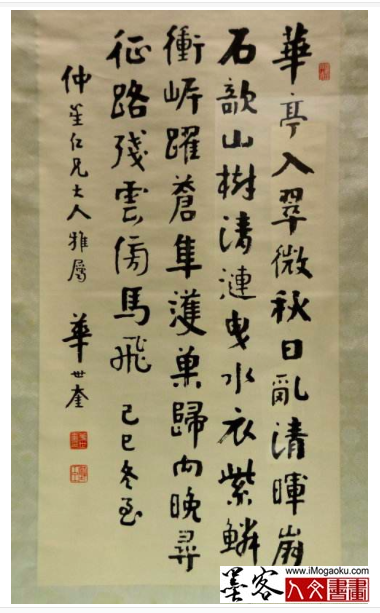 華亭入翠微秋日亂清暉崩
石欹山樹清漣曳水衣紫鱗
衝岸躍蒼隼護巢歸向晚尋
征路殘雲傍馬飛 己巳冬至
仲笙仁兄大人雅屬 華世奎
www.iMogaoku.com
墨客人文書畫